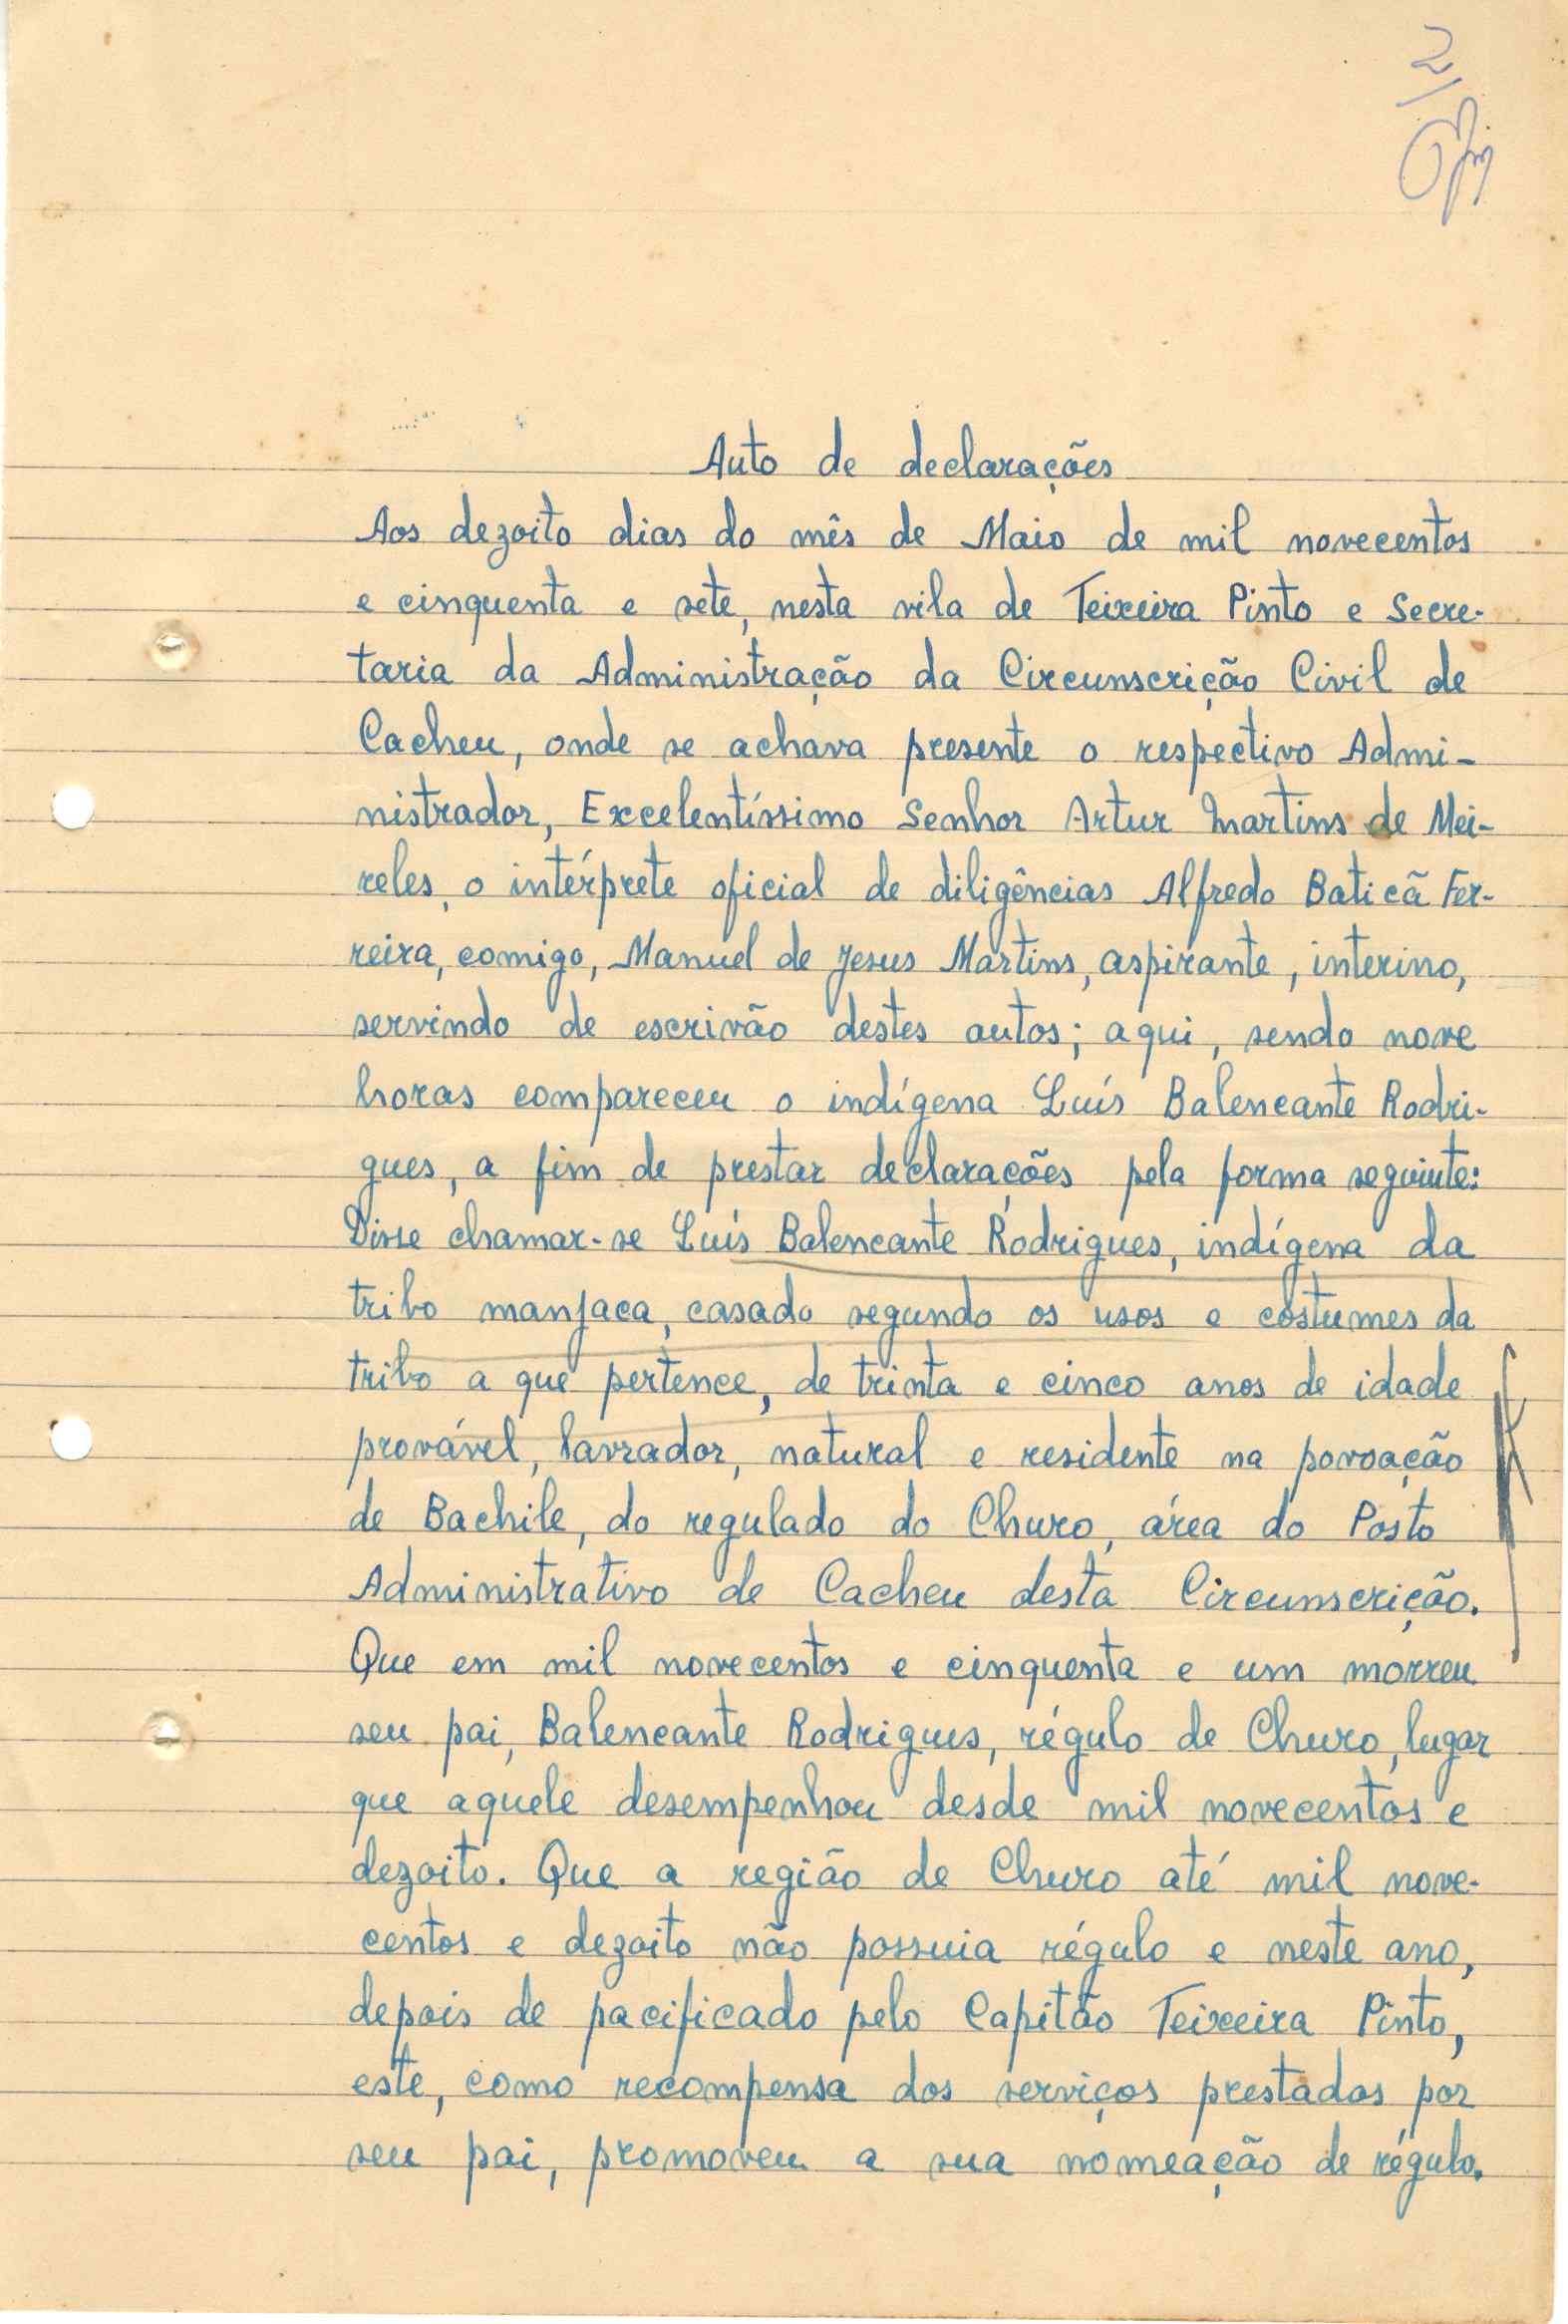 2
Auto de declarações
Aos dezoito dias do mês de Maio de mil novecentos
e cinquenta e sete, nesta vila de Teixeira Pinto e Secre-
taria da Administração da Circunscrição Civil de
Cacheu, onde se achava presente o respectivo Admi-
nistrador, Excelentíssimo Senhor Artur Martins de Mei-
reles, o intérprete oficial de diligências Alfredo Baticã Fer-
reira, comigo, Manuel de Jesus Martins, aspirante, interino,
servindo de escrivão destes autos; aqui, sendo nove
horas compareceu o indígena Luís Balencante Rodri-
gues, a fim de prestar declarações pela forma seguinte:
Disse chamar-se Luís Balencante Rodrigues, indígena da
tribo manjaca, casado segundo os usos e costumes da
tribo a que pertence, de trinta e cinco anos de idade
provável, lavrador, natural e residente na povoação
de Bachile, do regulado do Churo, área do Posto
Administrativo de Cacheu desta Circunscrição.
Que em mil novecentos e cinquenta e um morreu
seu pai, Balencante Rodrigues, régulo de Churo, lugar
que aquele desempenhou desde mil novecentos e
dezoito. Que a região de Churo até mil nove-
centos e dezoito não possuia régulo e neste ano,
depois de pacificado pelo Capitão Teixeira Pinto,
este, como recompensa dos serviços prestados por
seu pai, promoveu a sua nomeação de régulo.